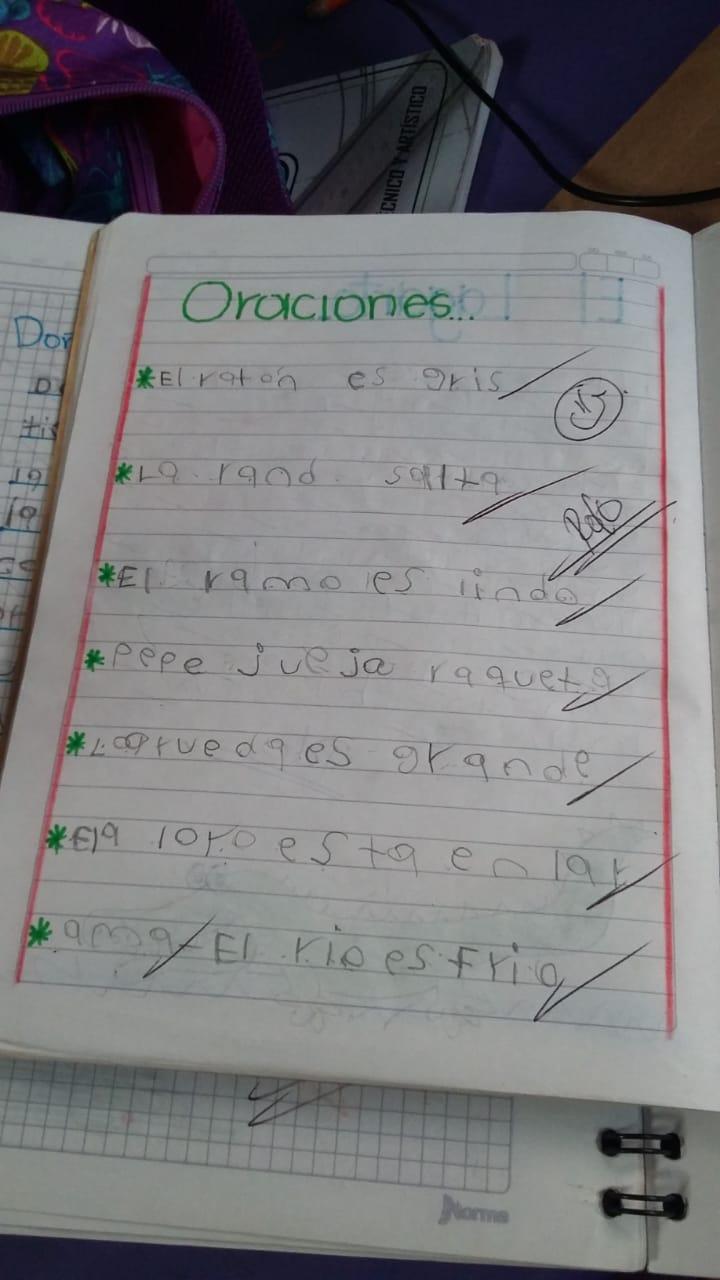 CNICO Y ARTÍSTICO
Oraciones...
*El ratón es gris
*La rana salta
*El ramo es lindo
*Pepe jueja raqueta
*La rueda es grande
*Ela loro esta en lar
*ama El rio es Frio
Norma